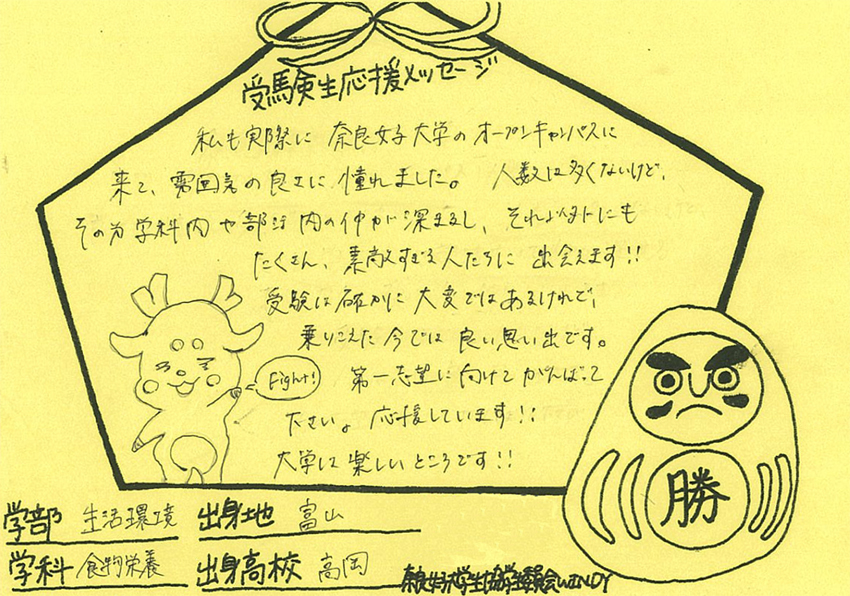 受験生応援メッセージ
私も実際に奈良女子大学のオープンキャンパスに
来て、雰囲気の良さに憧れました。人数は多くないけど、
その分学科内や部活内の仲が深まるし、それ以外にも
たくさん、素敵すぎる人たちに出会えます!!
受験は確かに大変ではあるけれど、
乗りこえた今では良い思い出です。
Fight!
第一志望に向けてがんばって
下さい。応援しています!!
大学は楽しいところです!!
勝
学部 生活環境 出身地 富山
学科 食物栄養 出身高校 高岡
奈良女子大学生協学生委員会WINDY